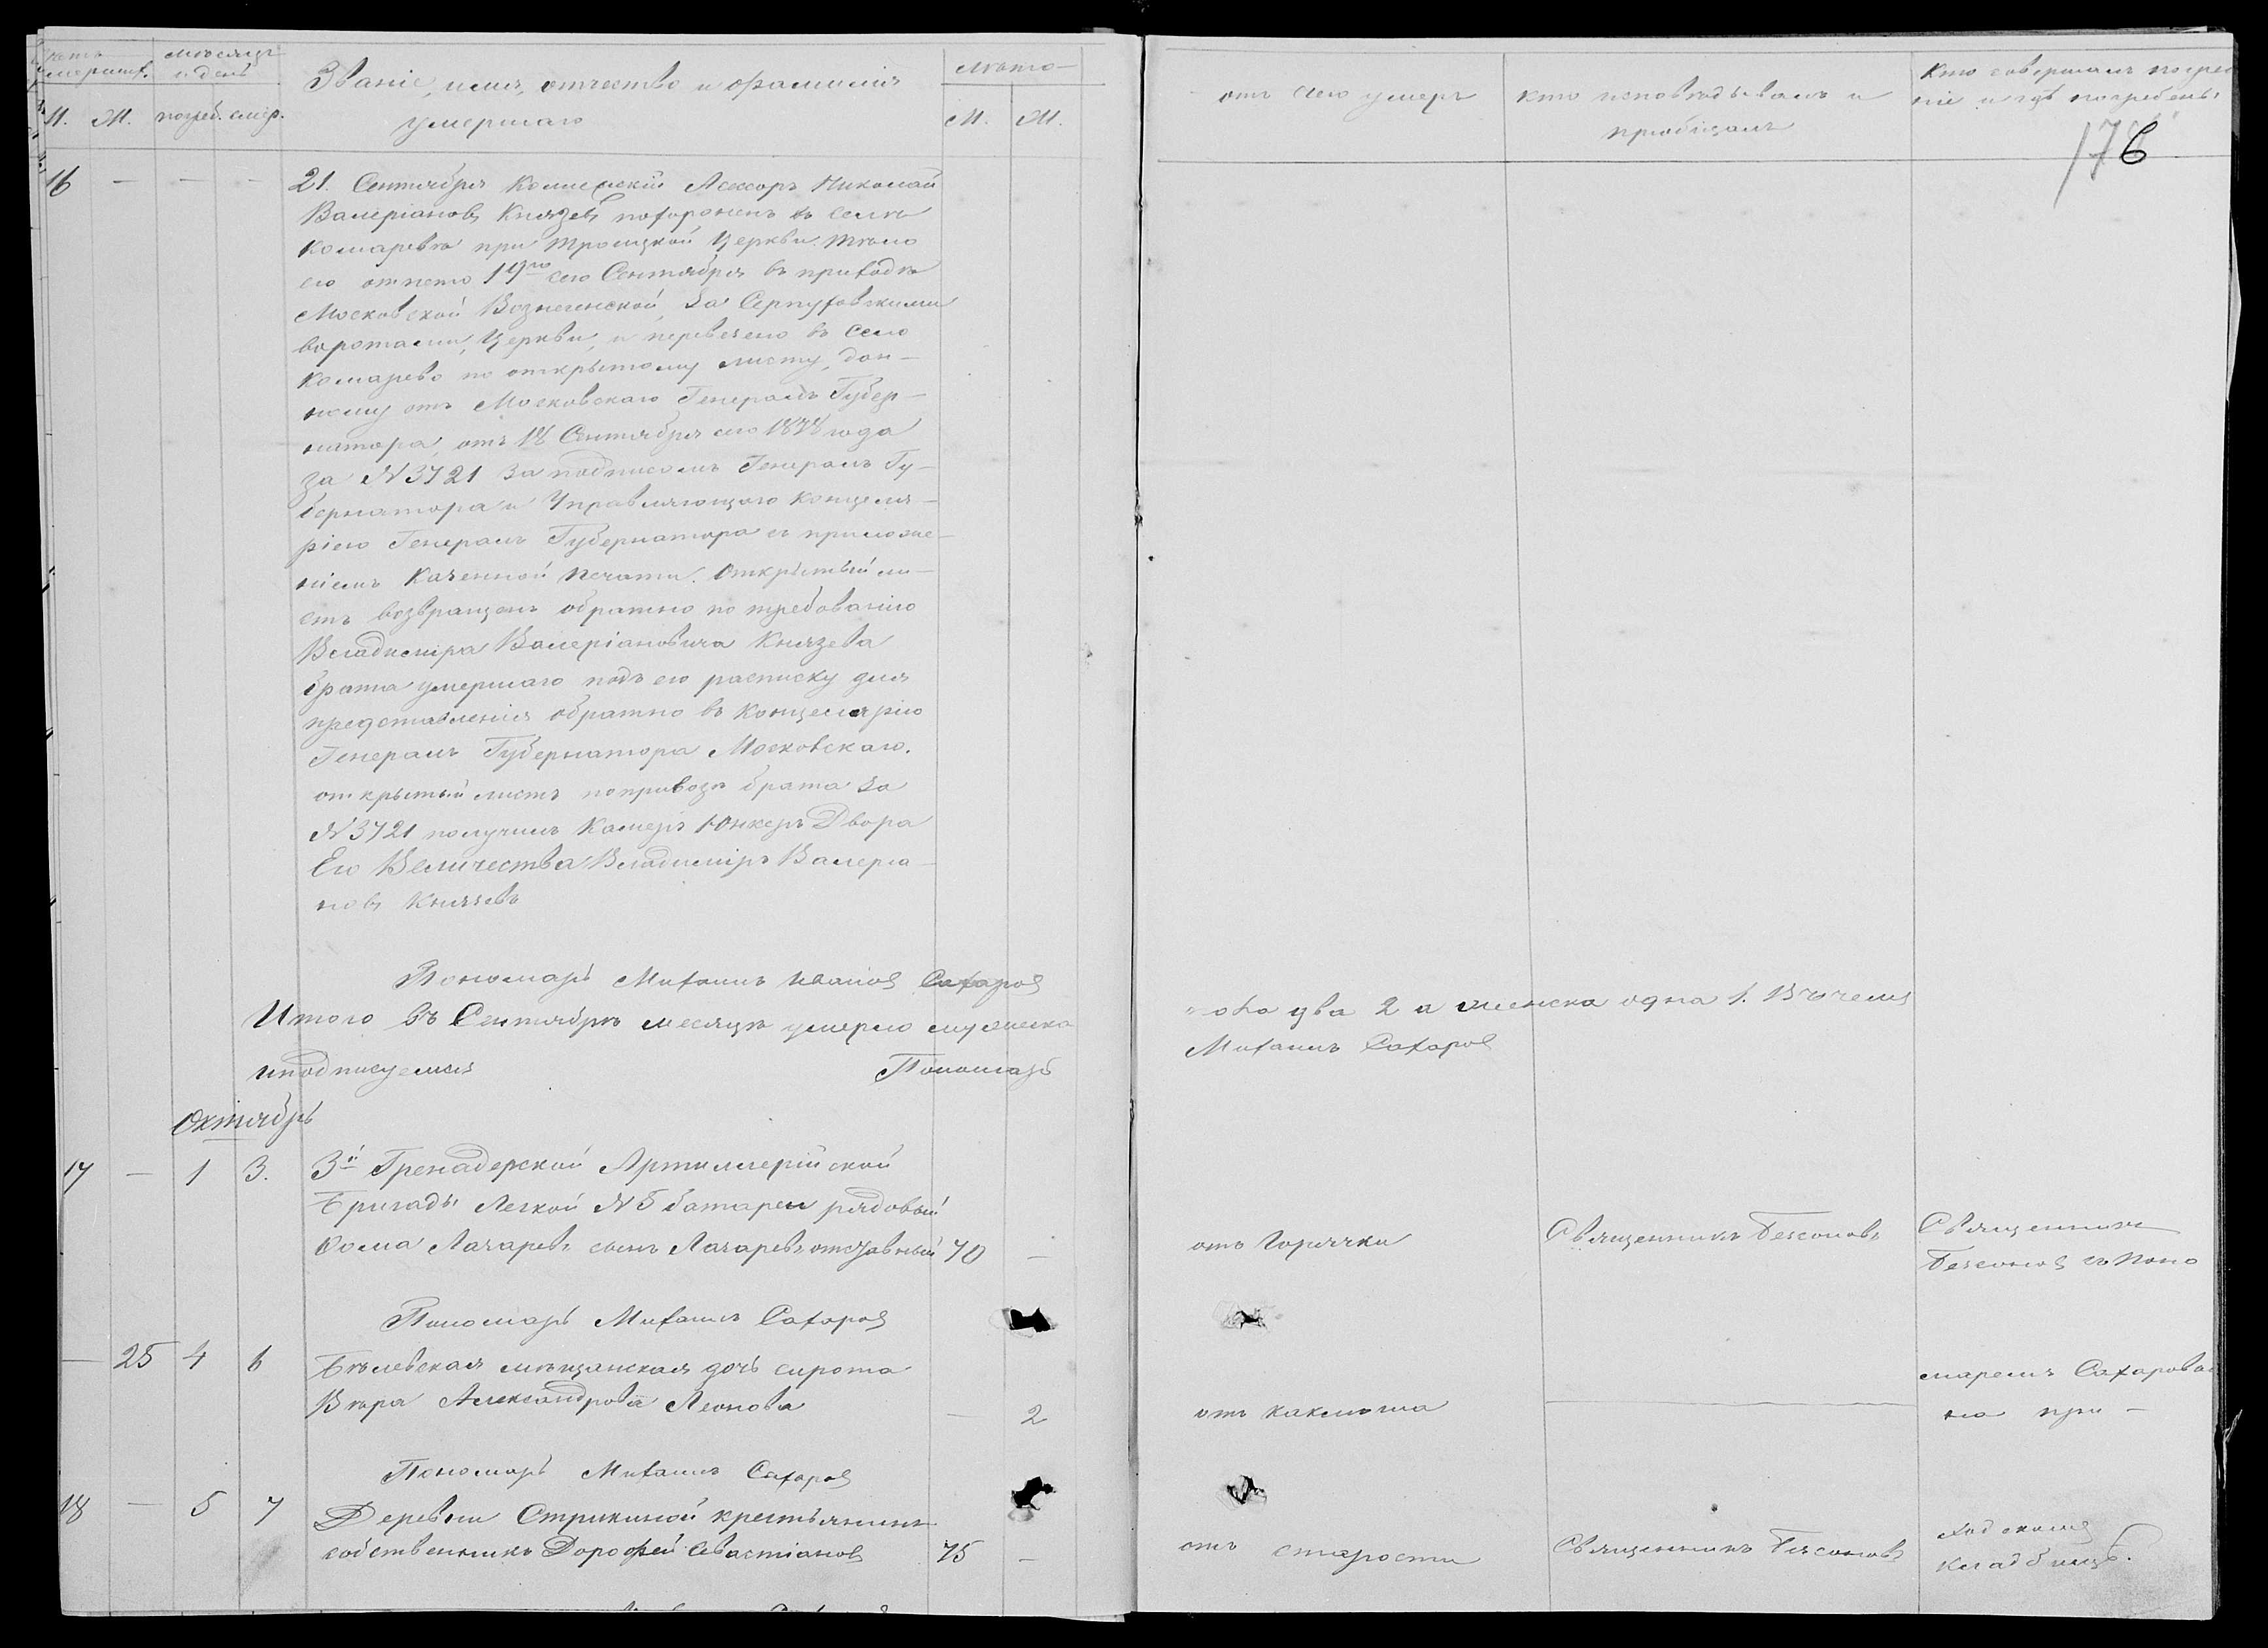 мѣсяцъ
и день
Званіе, имя, отчество и фамилія
умершаго
Лѣто-
М. Ж. погреб. смер.
М. Ж.
16 — — — 21. Сентября Коллежскій Ассесоръ Николай
Валеріановъ Князевъ похороненъ въ селѣ
Комаревѣ при Троицкой Церкви. Тѣло
его отпето 19го сего Сентября въ приходѣ
Московской Вознесенской, за Серпуховскими
воротами, Церкви, и перевезено въ село
Комарево по открытому листу, дан-
ному отъ Московскаго Генералъ Губер-
натора, отъ 18 Сентября сего 1878 года
за N 3721 за подписомъ Генералъ Гу-
бернатора и Управляющаго Канцеля-
ріею Генералъ Губернатора съ приложе-
ніемъ Казенной печати. Открытый ли-
стъ возвращенъ обратно по требованію
Владиміра Валеріановича Князева
брата умершаго подъ его расписку для
представленія обратно въ Канцелярію
Генералъ Губернатора Московскаго.
открытый листъ по привозѣ брата за
N 3721 получилъ Камеръ Юнкеръ Двора
Его Величества Владиміръ Валеріа-
новъ Князевъ
Пономарь Михаилъ Ивановъ Сахаровъ
Итого въ Сентябрѣ месяцѣ умерло мужеска
и подписуемся Пономарь
Октябрь
17 — 1 3. 3й Гренадерской Артиллерійской
Бригады Легкой N 5 батареи рядовый
Фома Лазаревъ сынъ Лазаревъ отставный 70 —
Пономарь Михаилъ Сахаровъ
— 25 4 6 Бѣлевская мѣщанская дочь сирота
Вѣра Александрова Леонова — 2
Пономарь Михаилъ Сахаровъ
18 — 5 7 Деревни Стрикиной крестьянинъ
собственникъ Дорофей Севастіановъ 75 —
отъ чего умеръ
кто исповѣдывалъ и
пріобщалъ
Кто совершалъ погребе
ніе и гдѣ погребены
176
пола два 2 а женска одна 1. В чемъ
Михаилъ Сахаровъ
отъ горячки Священникъ Безсоновъ Священникъ
Безсоновъ съ поно
маремъ Сахаровы
отъ кашля на при-
отъ старости Священникъ Безсоновъ ходскомъ
кладбищѣ.